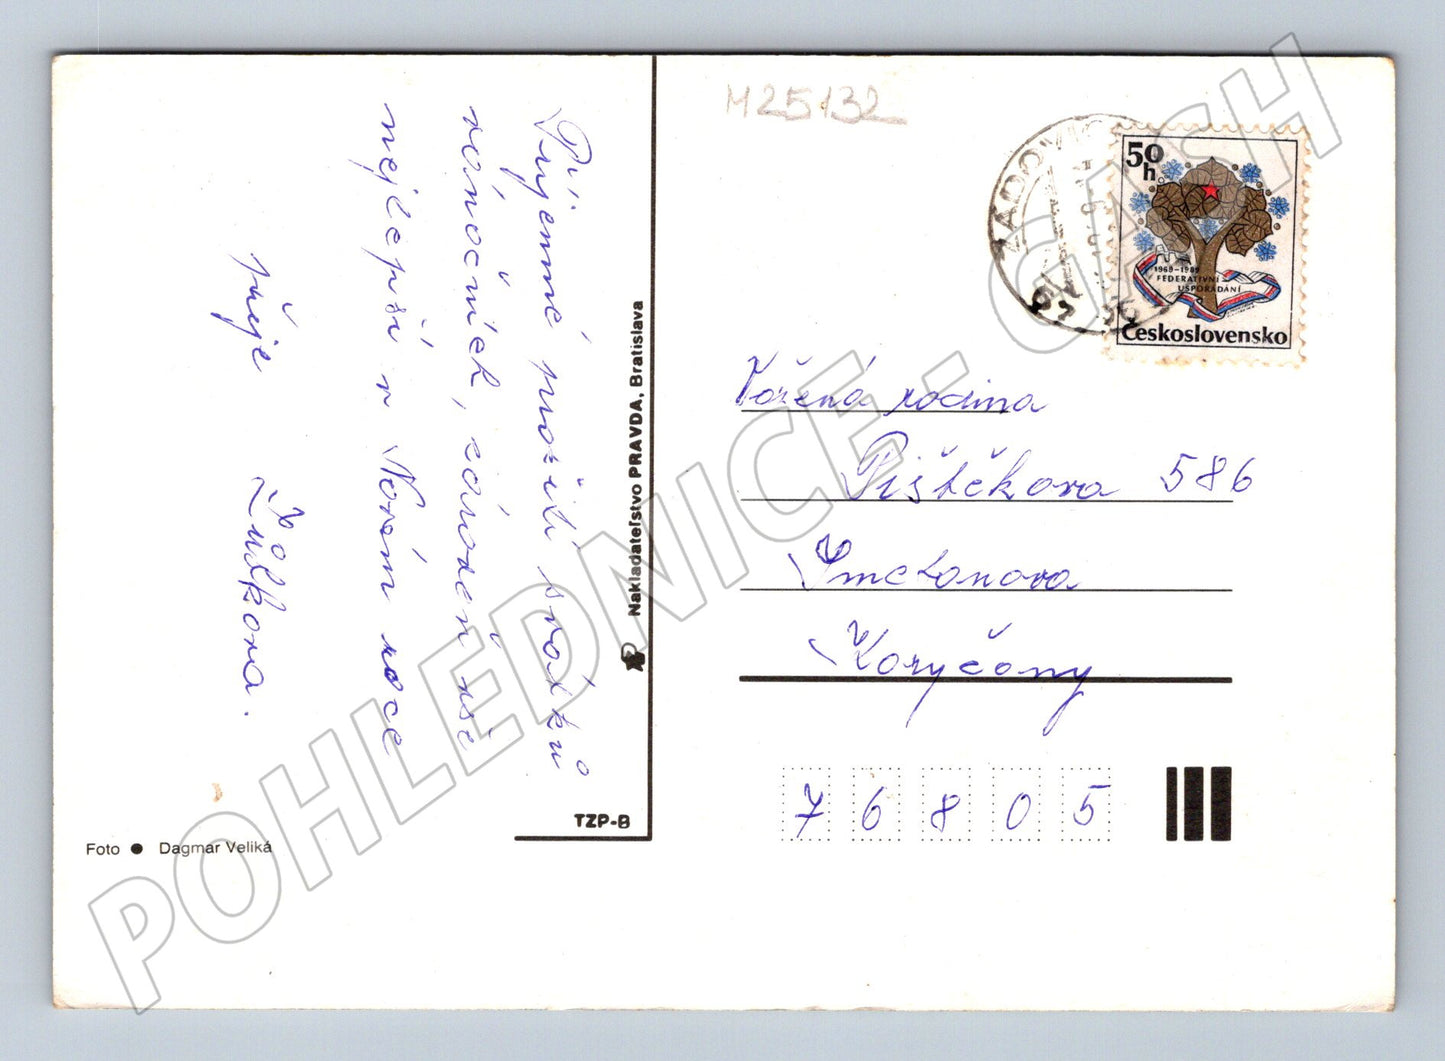 M25132
Příjemné prožití svátků
vánočních, zároveň vše
nejlepší v Novém roce
přeje Žůlkova.
Nakladateľstvo PRAVDA, Bratislava
TZP-B
Foto ● Dagmar Veliká
50
h.
1969-1989
FEDERATIVNÍ
USPOŘÁDÁNÍ
Československo
Vážená rodina
Pištěkova 586
Smetanova
Koryčany
76805
POHLEDNICE - GASH